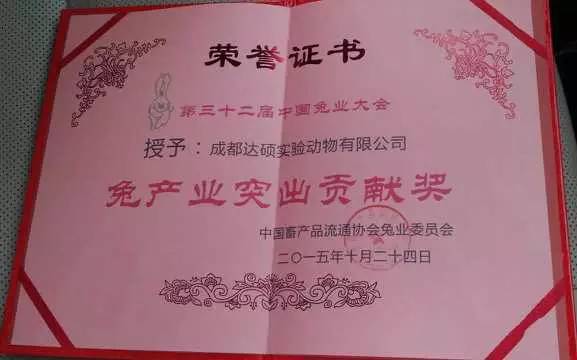 荣誉证书
第三十二届中国兔业大会
授予：成都达硕实验动物有限公司
兔产业突出贡献奖
中国畜产品流通协会兔业委员会
二〇一五年十月二十四日